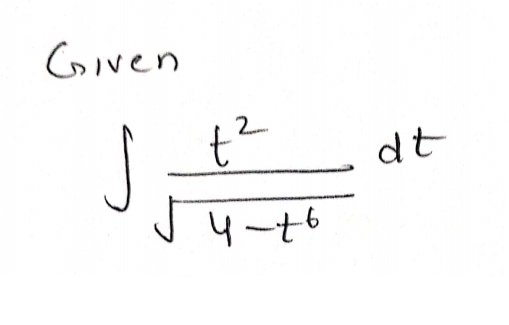 Given
∫ t² / √(4-t⁶) dt